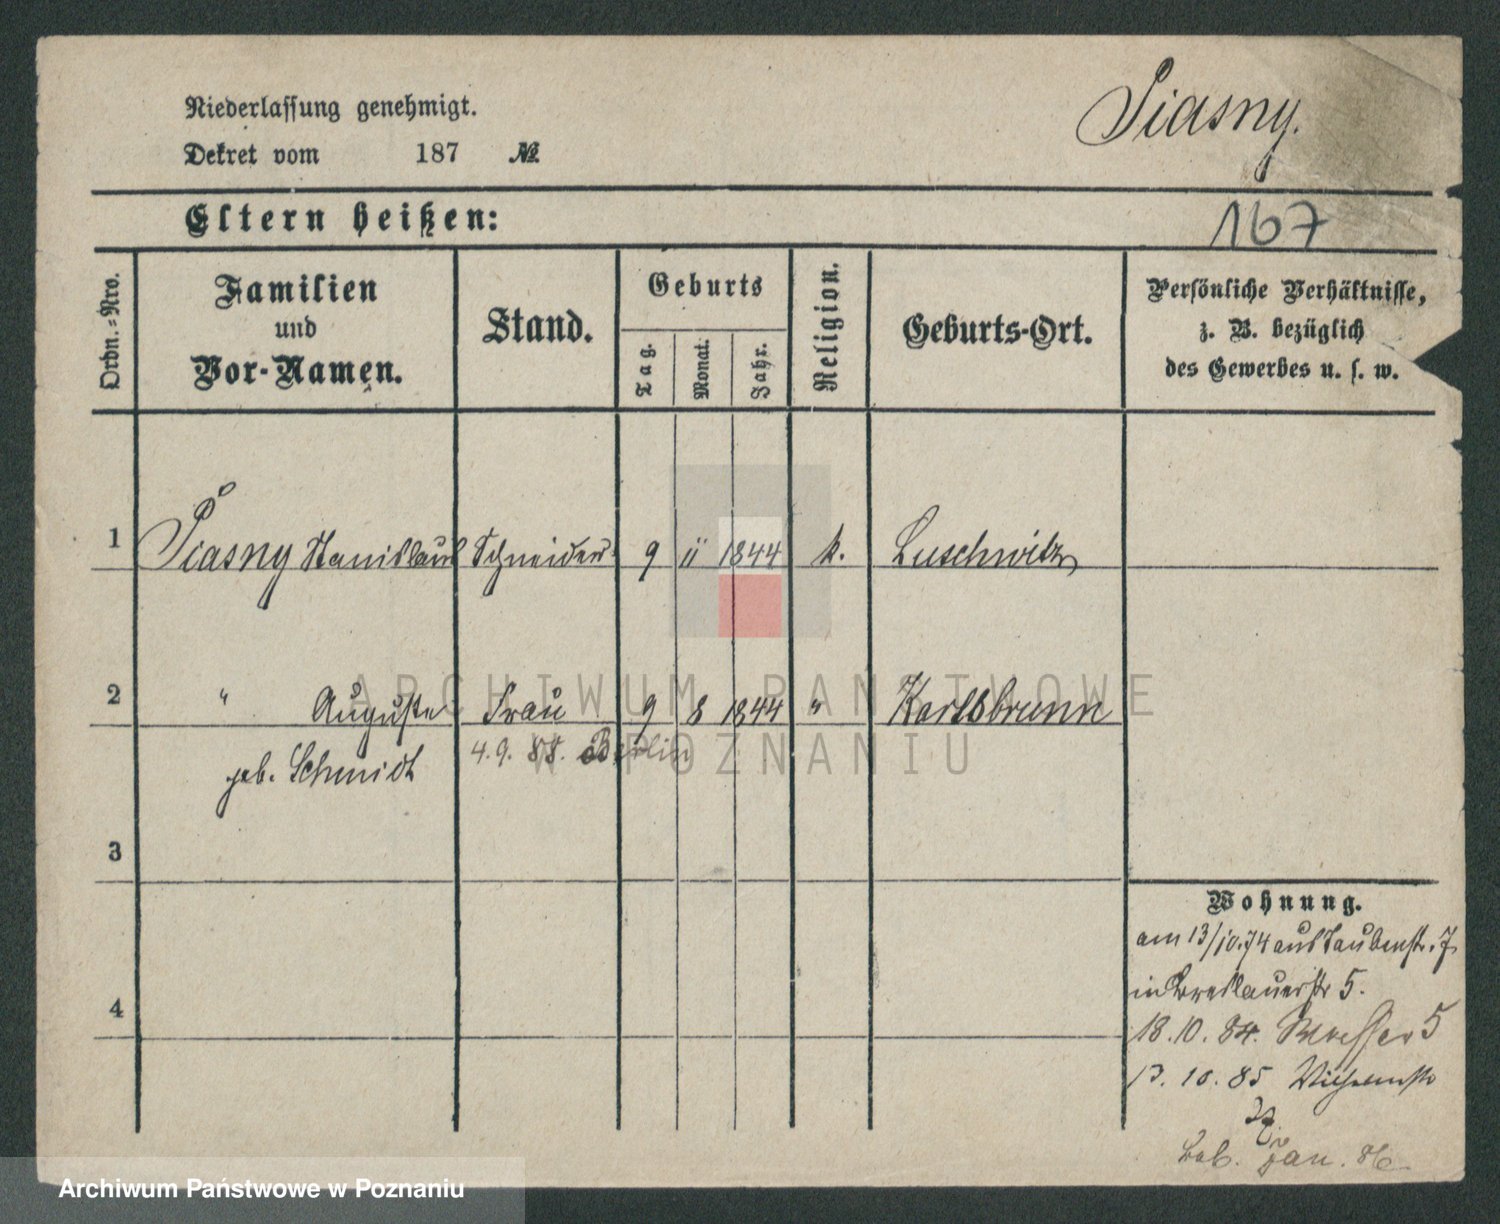 Piasny.
Niederlassung genehmigt.
Dekret vom 187 №
167
Eltern heißen:
Ordn.=Nro.
Familien
und
Vor-Namen.
Stand.
Geburts
Tag.
Monat.
Jahr.
Religion.
Geburts-Ort.
Persönliche Verhältnisse,
z. B. bezüglich
des Gewerbes u. s. w.
1 Piasny Stanislaus Schneider 9 11 1844 k. Luschwitz
2 " Auguste Frau 9 8 1844 " Karlsbrunn
geb. Schmidt 4.9.88. Berlin
3
4
Wohnung.
am 13/10.74 aus Taubenstr. 7
in Breslauerstr 5.
18.10.84. Wasser 5
13.10.85 Wilhelmstr
Jan. 86
ARCHIWUM PAŃSTWOWE
W POZNANIU
Archiwum Państwowe w Poznaniu